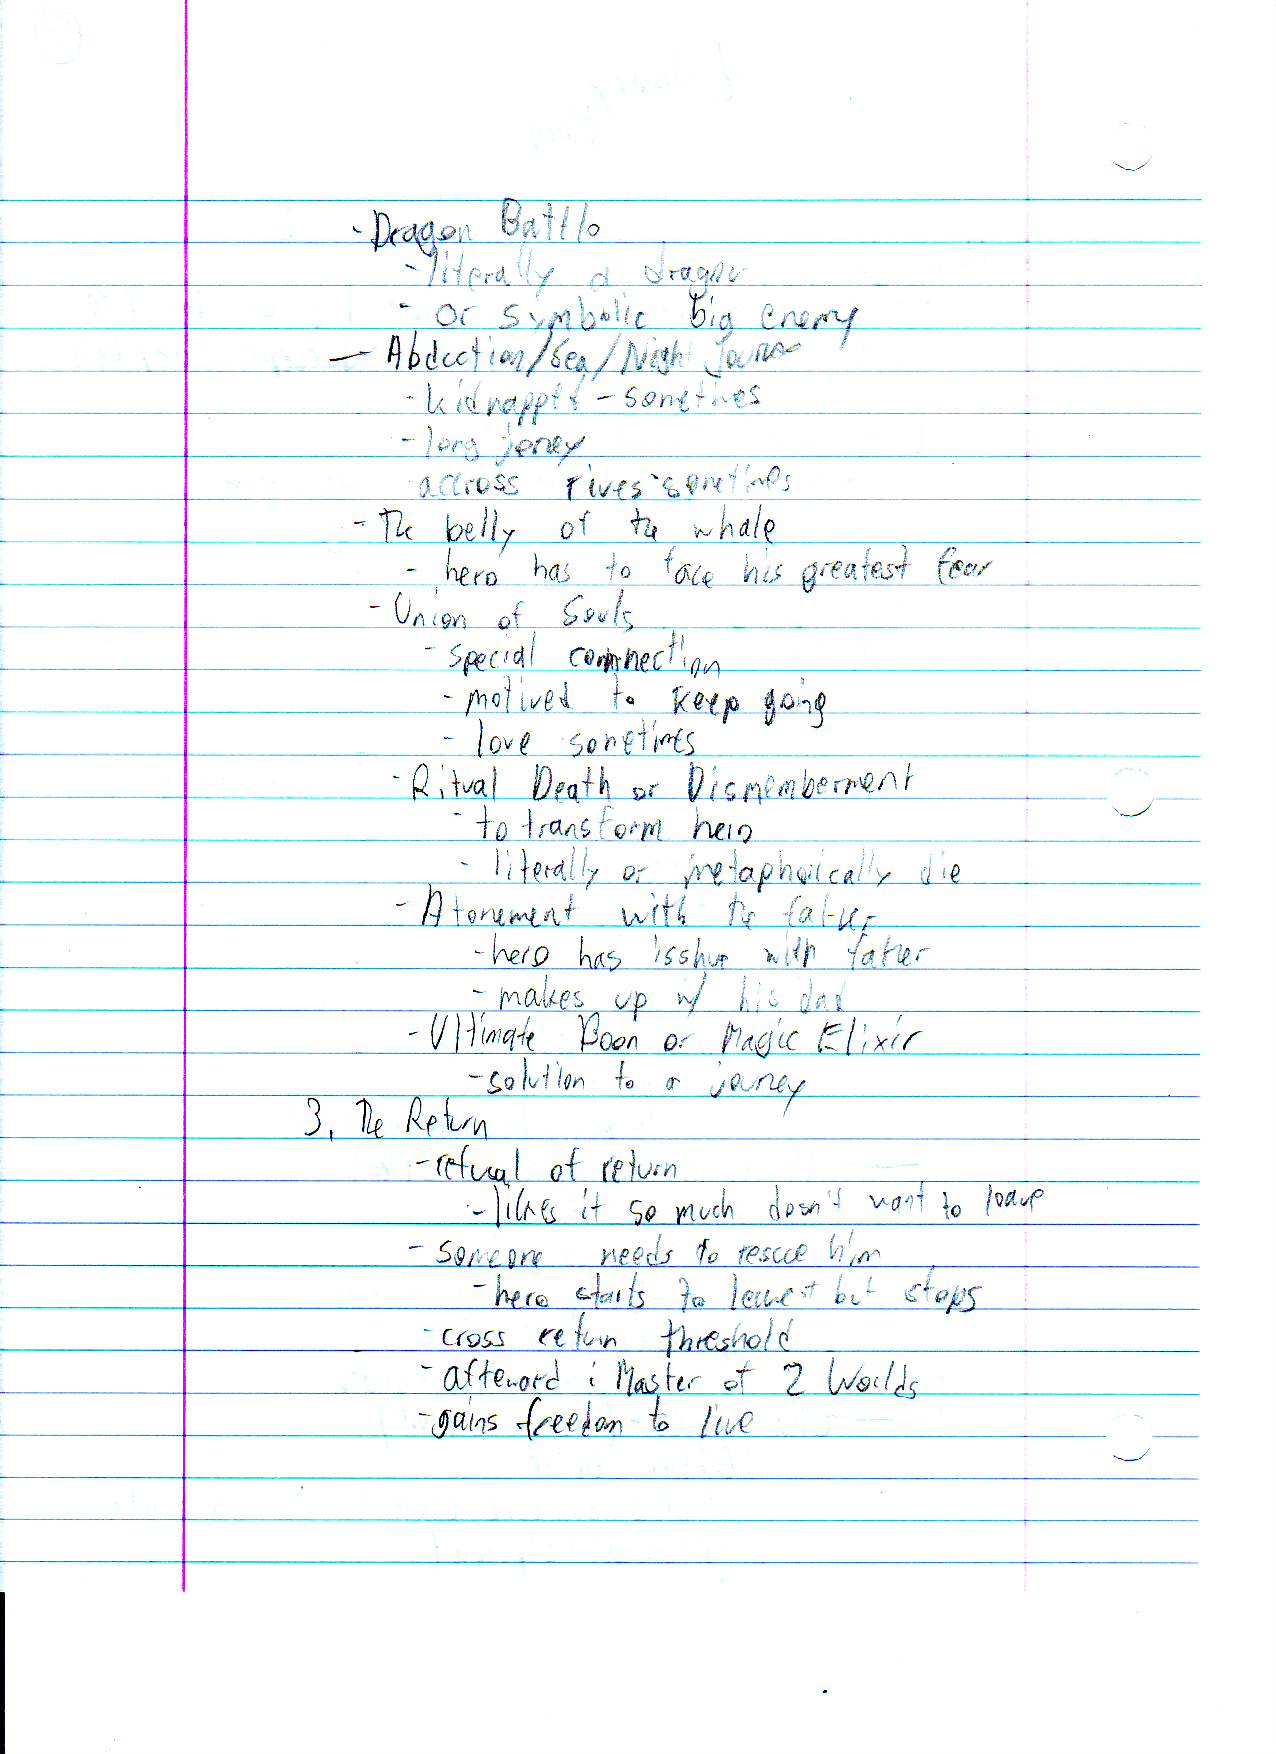 - Dragon Battle
- literally a dragon
- or symbolic big enemy
- Abduction/Sea/Night Journe
- kidnappet - sometimes
- long joney
accross rives sometimes
- The belly of the whale
- hero has to face his greatest fear
- Union of Souls
- special connection
- motived to keep going
- love sometimes
- Ritual Death or Dismemberment
- to transform hero
- literally or metaphorically die
- Atonement with the father
- hero has isshue with father
- makes up w/ his dad
- Ultimate Boon or Magic Elixir
- solution to a journey
3. The Return
- refusal of return
- likes it so much doesn't want to leave
- someone needs to rescue him
- hero starts to leave but stops
- cross return threshold
- afterword : Master of 2 Worlds
- gains freedom to live